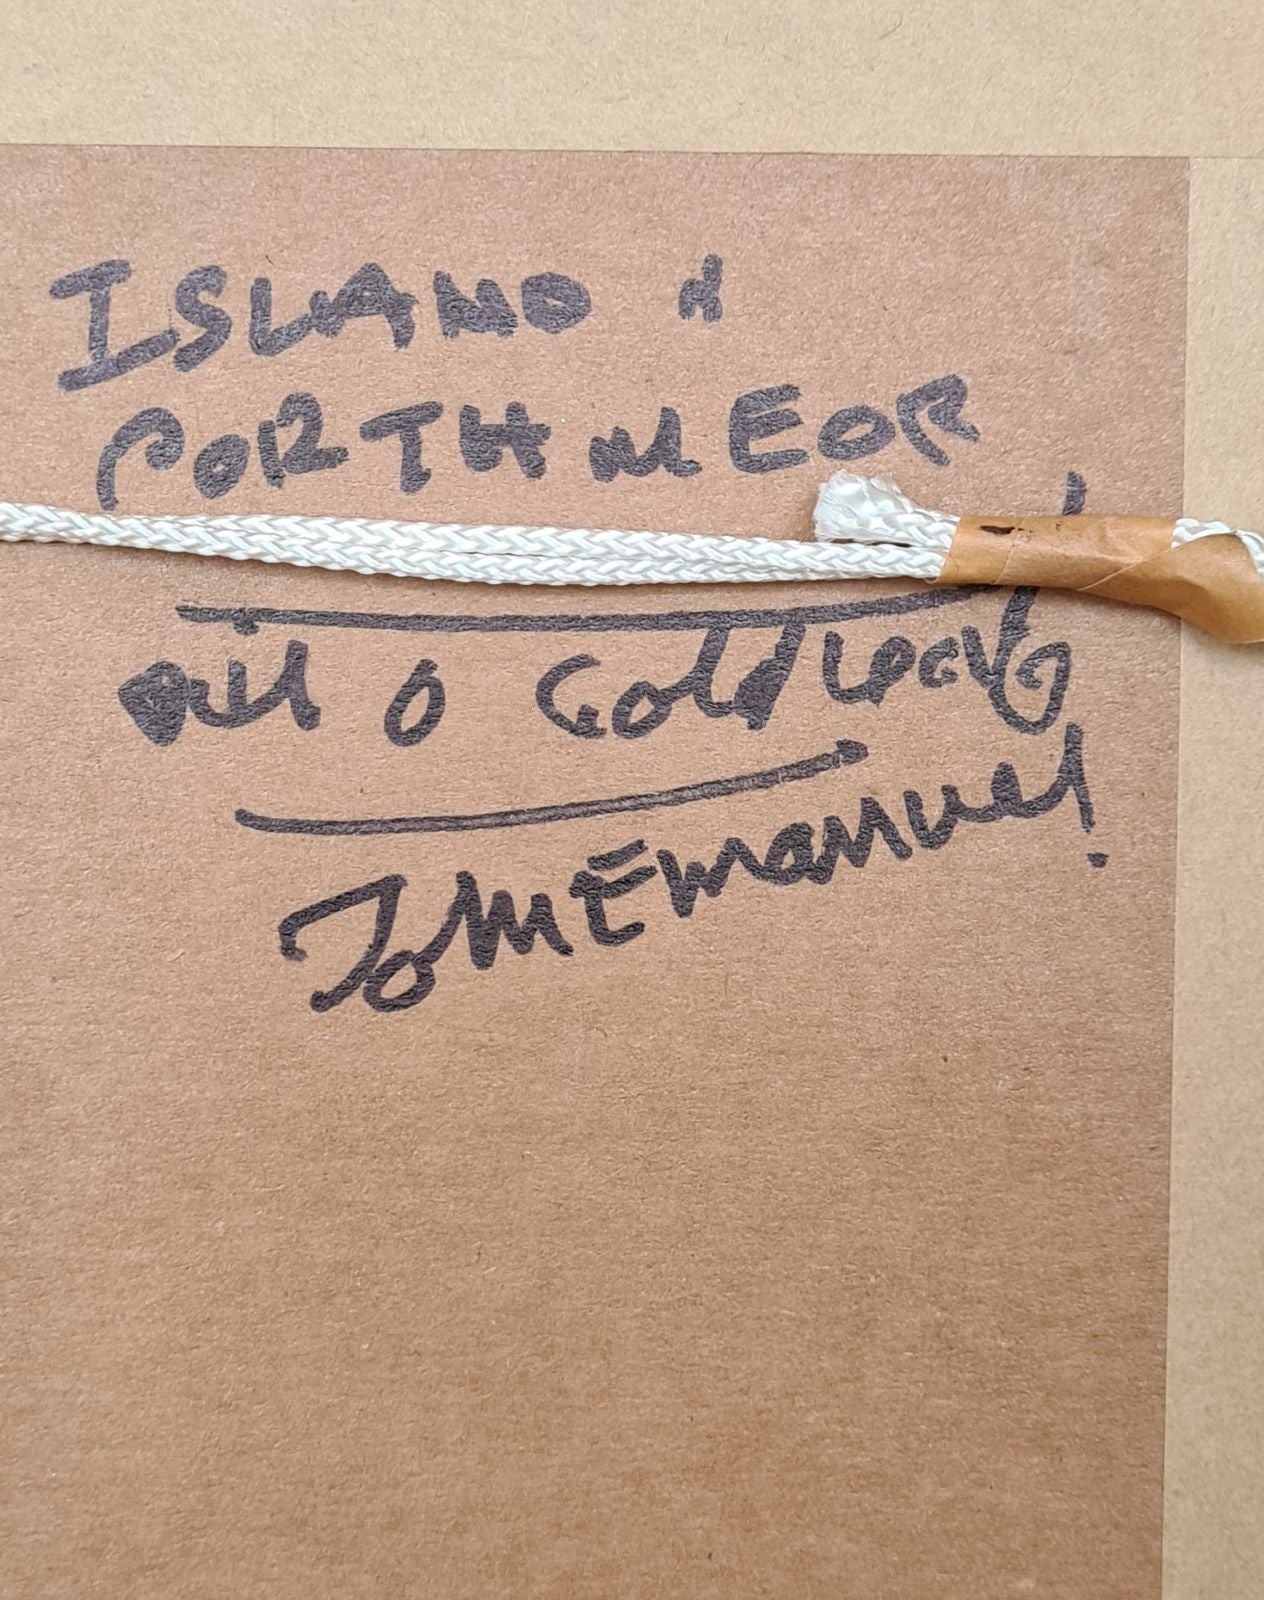 ISLAND &
PORTHMEOR
oil & Gold Leaf
Tom Emanuel.